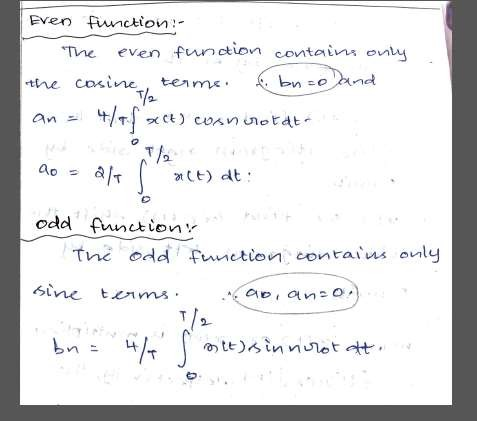 Even function:-
The even function contains only
the cosine terms. ∴ bn = 0 and
an = 4/T ∫₀^T/2 x(t) cosnω0t dt.
a0 = 2/T ∫₀^T/2 x(t) dt.
odd function:-
The odd function contains only
sine terms. ∴ a0, an = 0.
bn = 4/T ∫₀^T/2 x(t) sin nω0t dt.